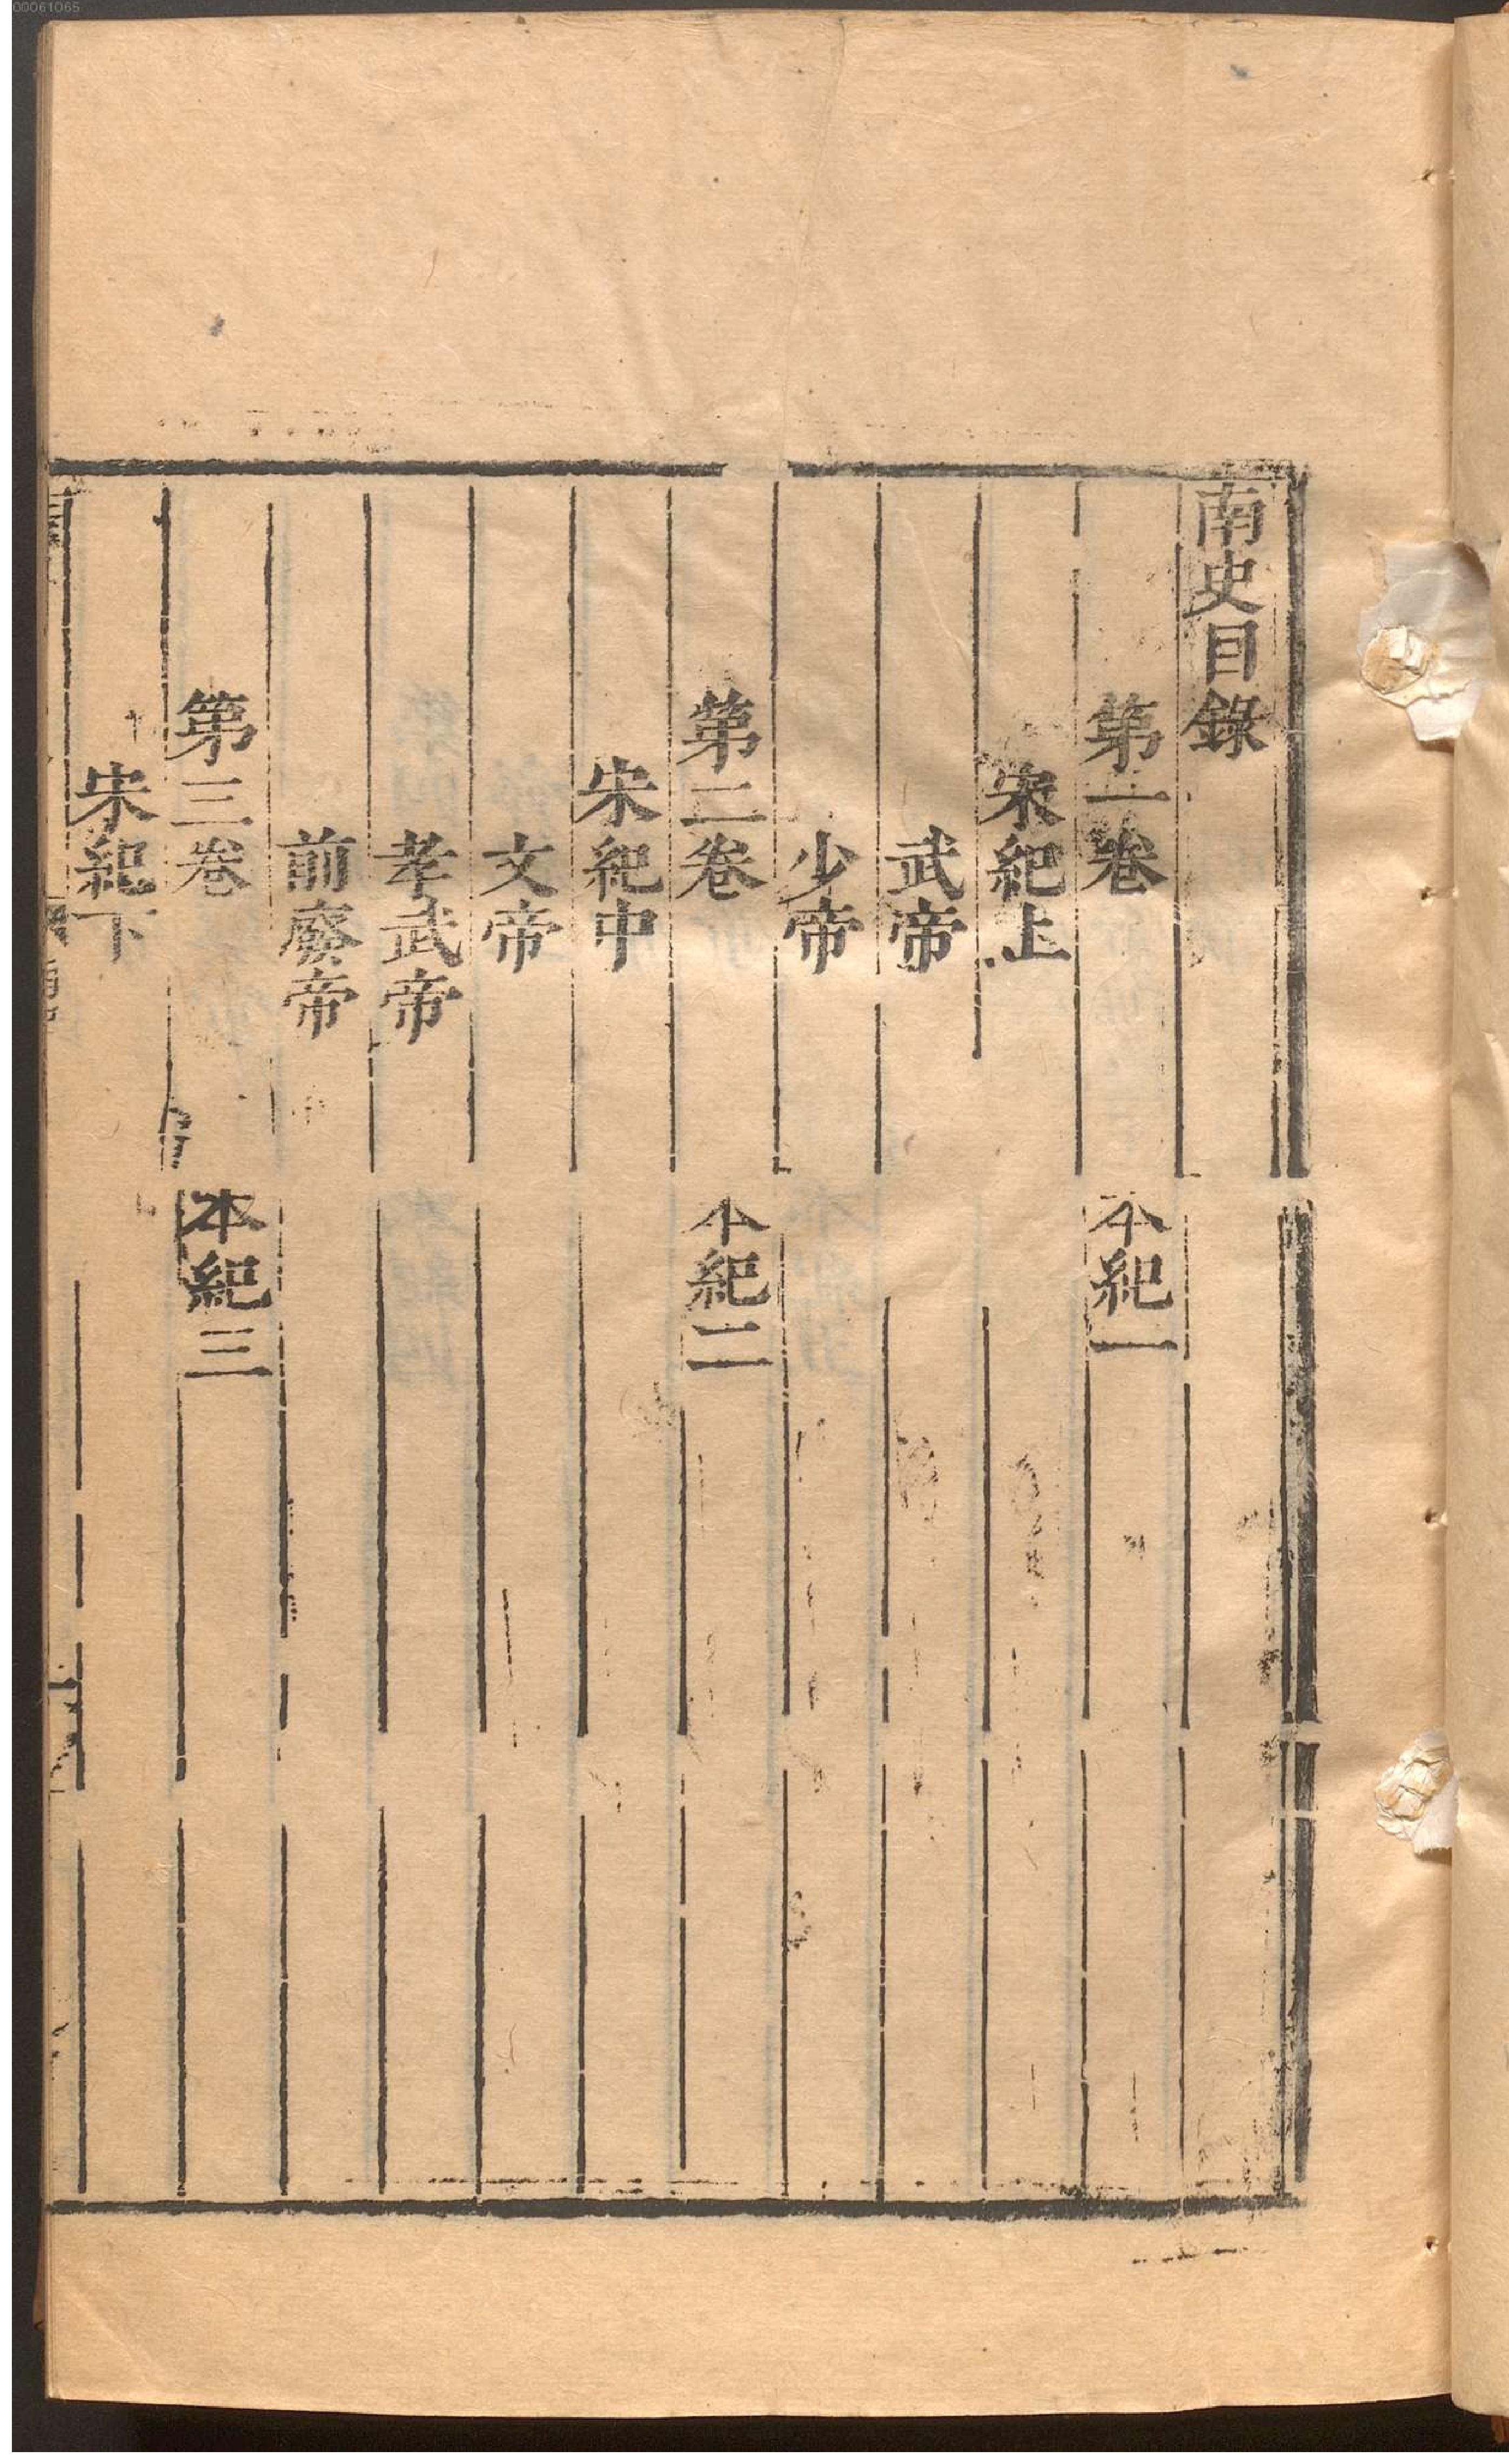 00061065
南史目錄
第一卷　本紀一
宋紀上
武帝
少帝
第二卷　本紀二
宋紀中
文帝
孝武帝
前廢帝
第三卷　本紀三
宋紀下